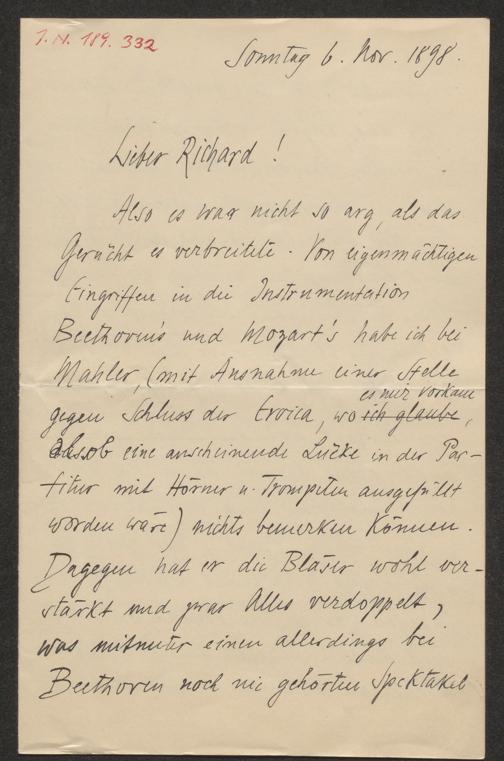 J. N. 189.332
Sonntag 6. Nov. 1898.
Lieber Richard!
Also es war nicht so arg, als das
Gerücht es verbreitete. Von eigenmächtigen
Eingriffen in die Instrumentation
Beethoven's und Mozart's habe ich bei
Mahler, (mit Ausnahme einer Stelle
es mir vorkam
gegen Schluss der Eroica, wo ich glaube,
als ob eine anscheinende Lücke in der Par-
titur mit Hörner u. Trompeten ausgefüllt
worden wäre) nichts bemerken können.
Dagegen hat er die Bläser wohl ver-
stärkt und zwar Alles verdoppelt,
was mitunter einen allerdings bei
Beethoven noch nie gehörten Spektakel